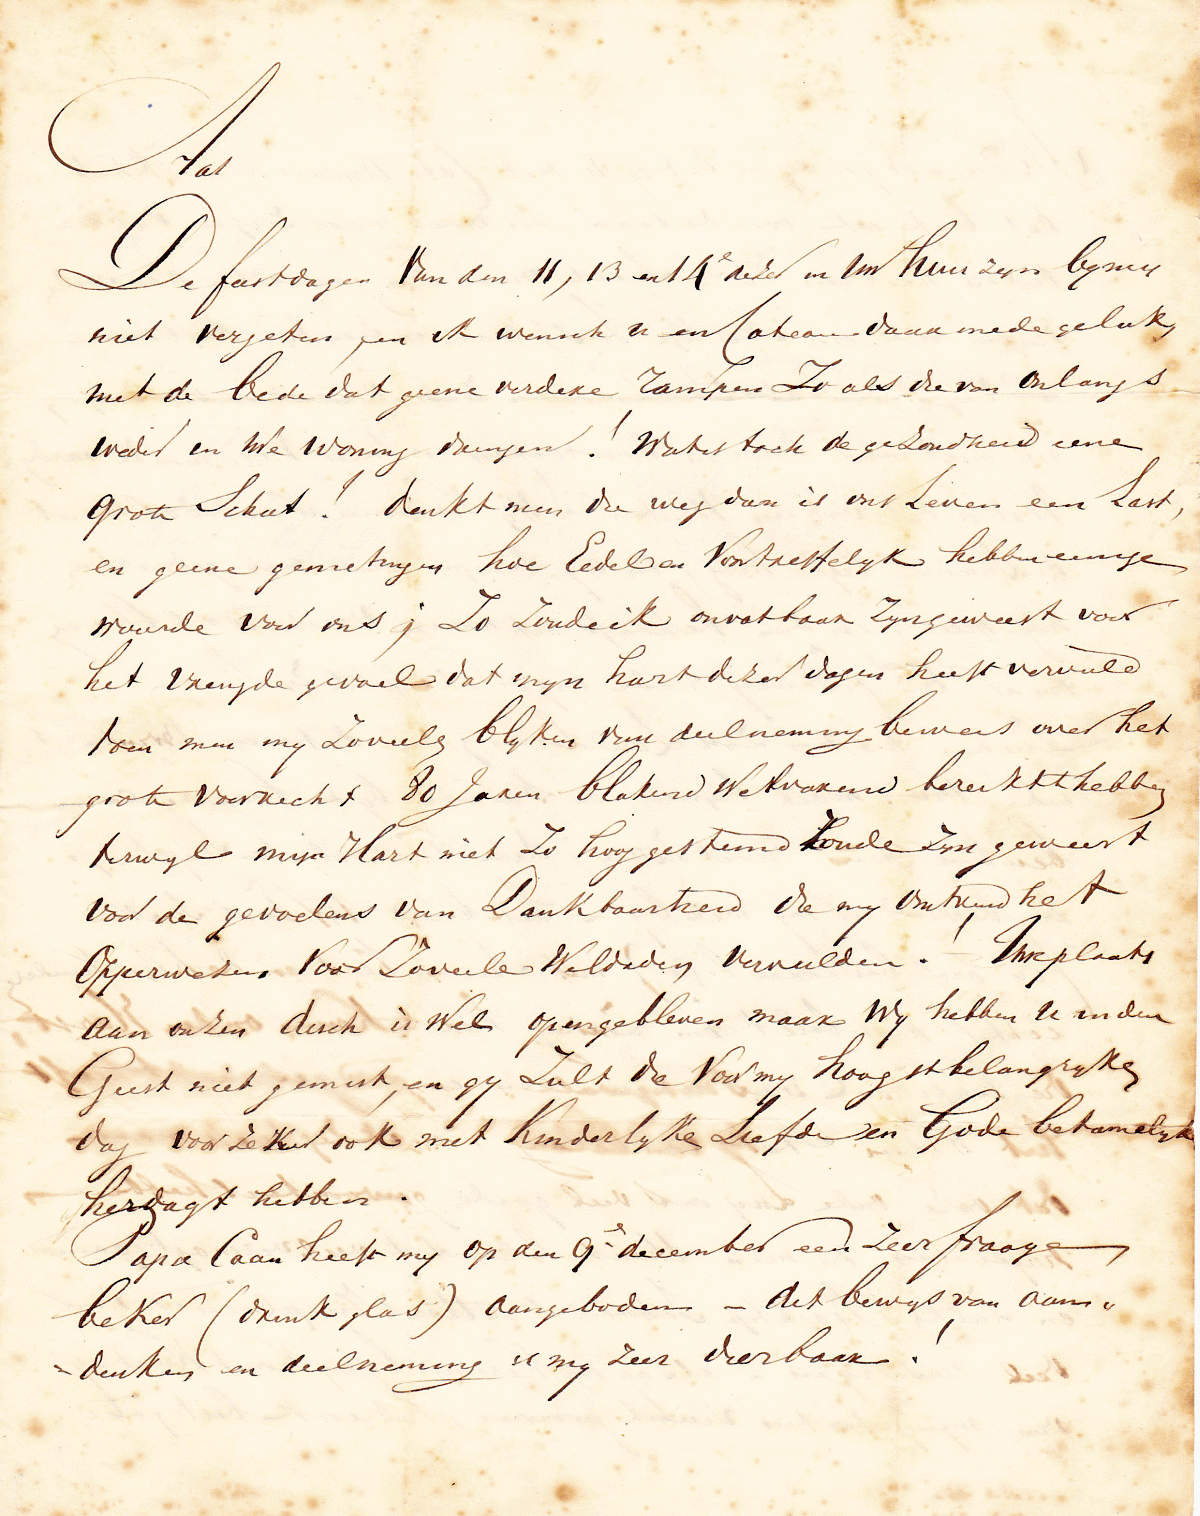 De feestdagen van den 11, 13 en 14e dezer in uw huis zyn by my
niet vergeten, en ik wensch u en Cateau daar mede geluk,
met de bede dat geene verdere rampen zo als die van onlangs
weder in Uwe woning dringen! Wat is toch de gezondheid eene
grote Schat! denkt men die weg dan is ons Leven een Last,
en geene genietingen hoe Eedel en Voortreffelyk hebben eenige
waarde voor ons; Zo Zoude ik onvatbaar zyn geweest voor
het vreugde gevoel dat myn hart dezer dagen heeft vervuld
toen men my zoveele blyken van deelneming bewees over het
grote voorrecht 80 Jaren blakend Welvarend bereikt te hebben
terwyl myn Hart niet zo hoog gestemd Zoude zyn geweest
voor de gevoelens van Dankbaarheid die my omtrend het
Opperwezen Voor Zoveele Weldaden vervulden! Uwe plaats
aan onzen disch is Wel opengebleven maar Wy hebben u in den
Geest niet gemist, en gy Zult die Voor my hoogst belangryke
dag voorzeker ook met Kinderlyke Liefde en Gode betamelyk
herdagt hebben.
Papa Caan heeft my op den 9e december een zeer fraaye
beker (drink glas) aangeboden – dit bewys van aan-
-denken en deelneming is my zeer dierbaar!